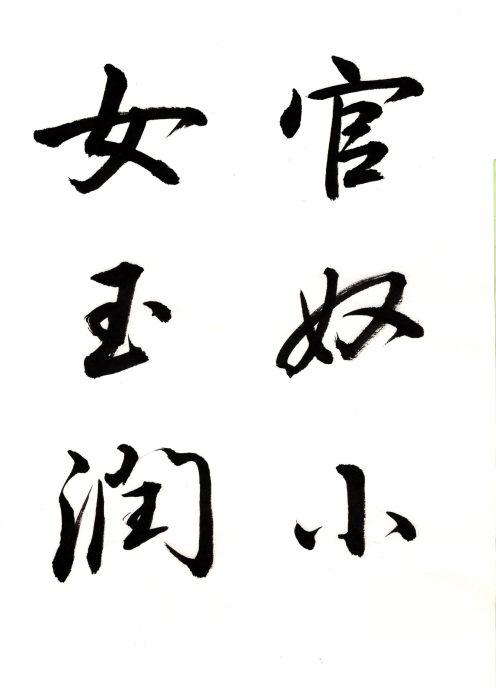 官奴小
女玉润